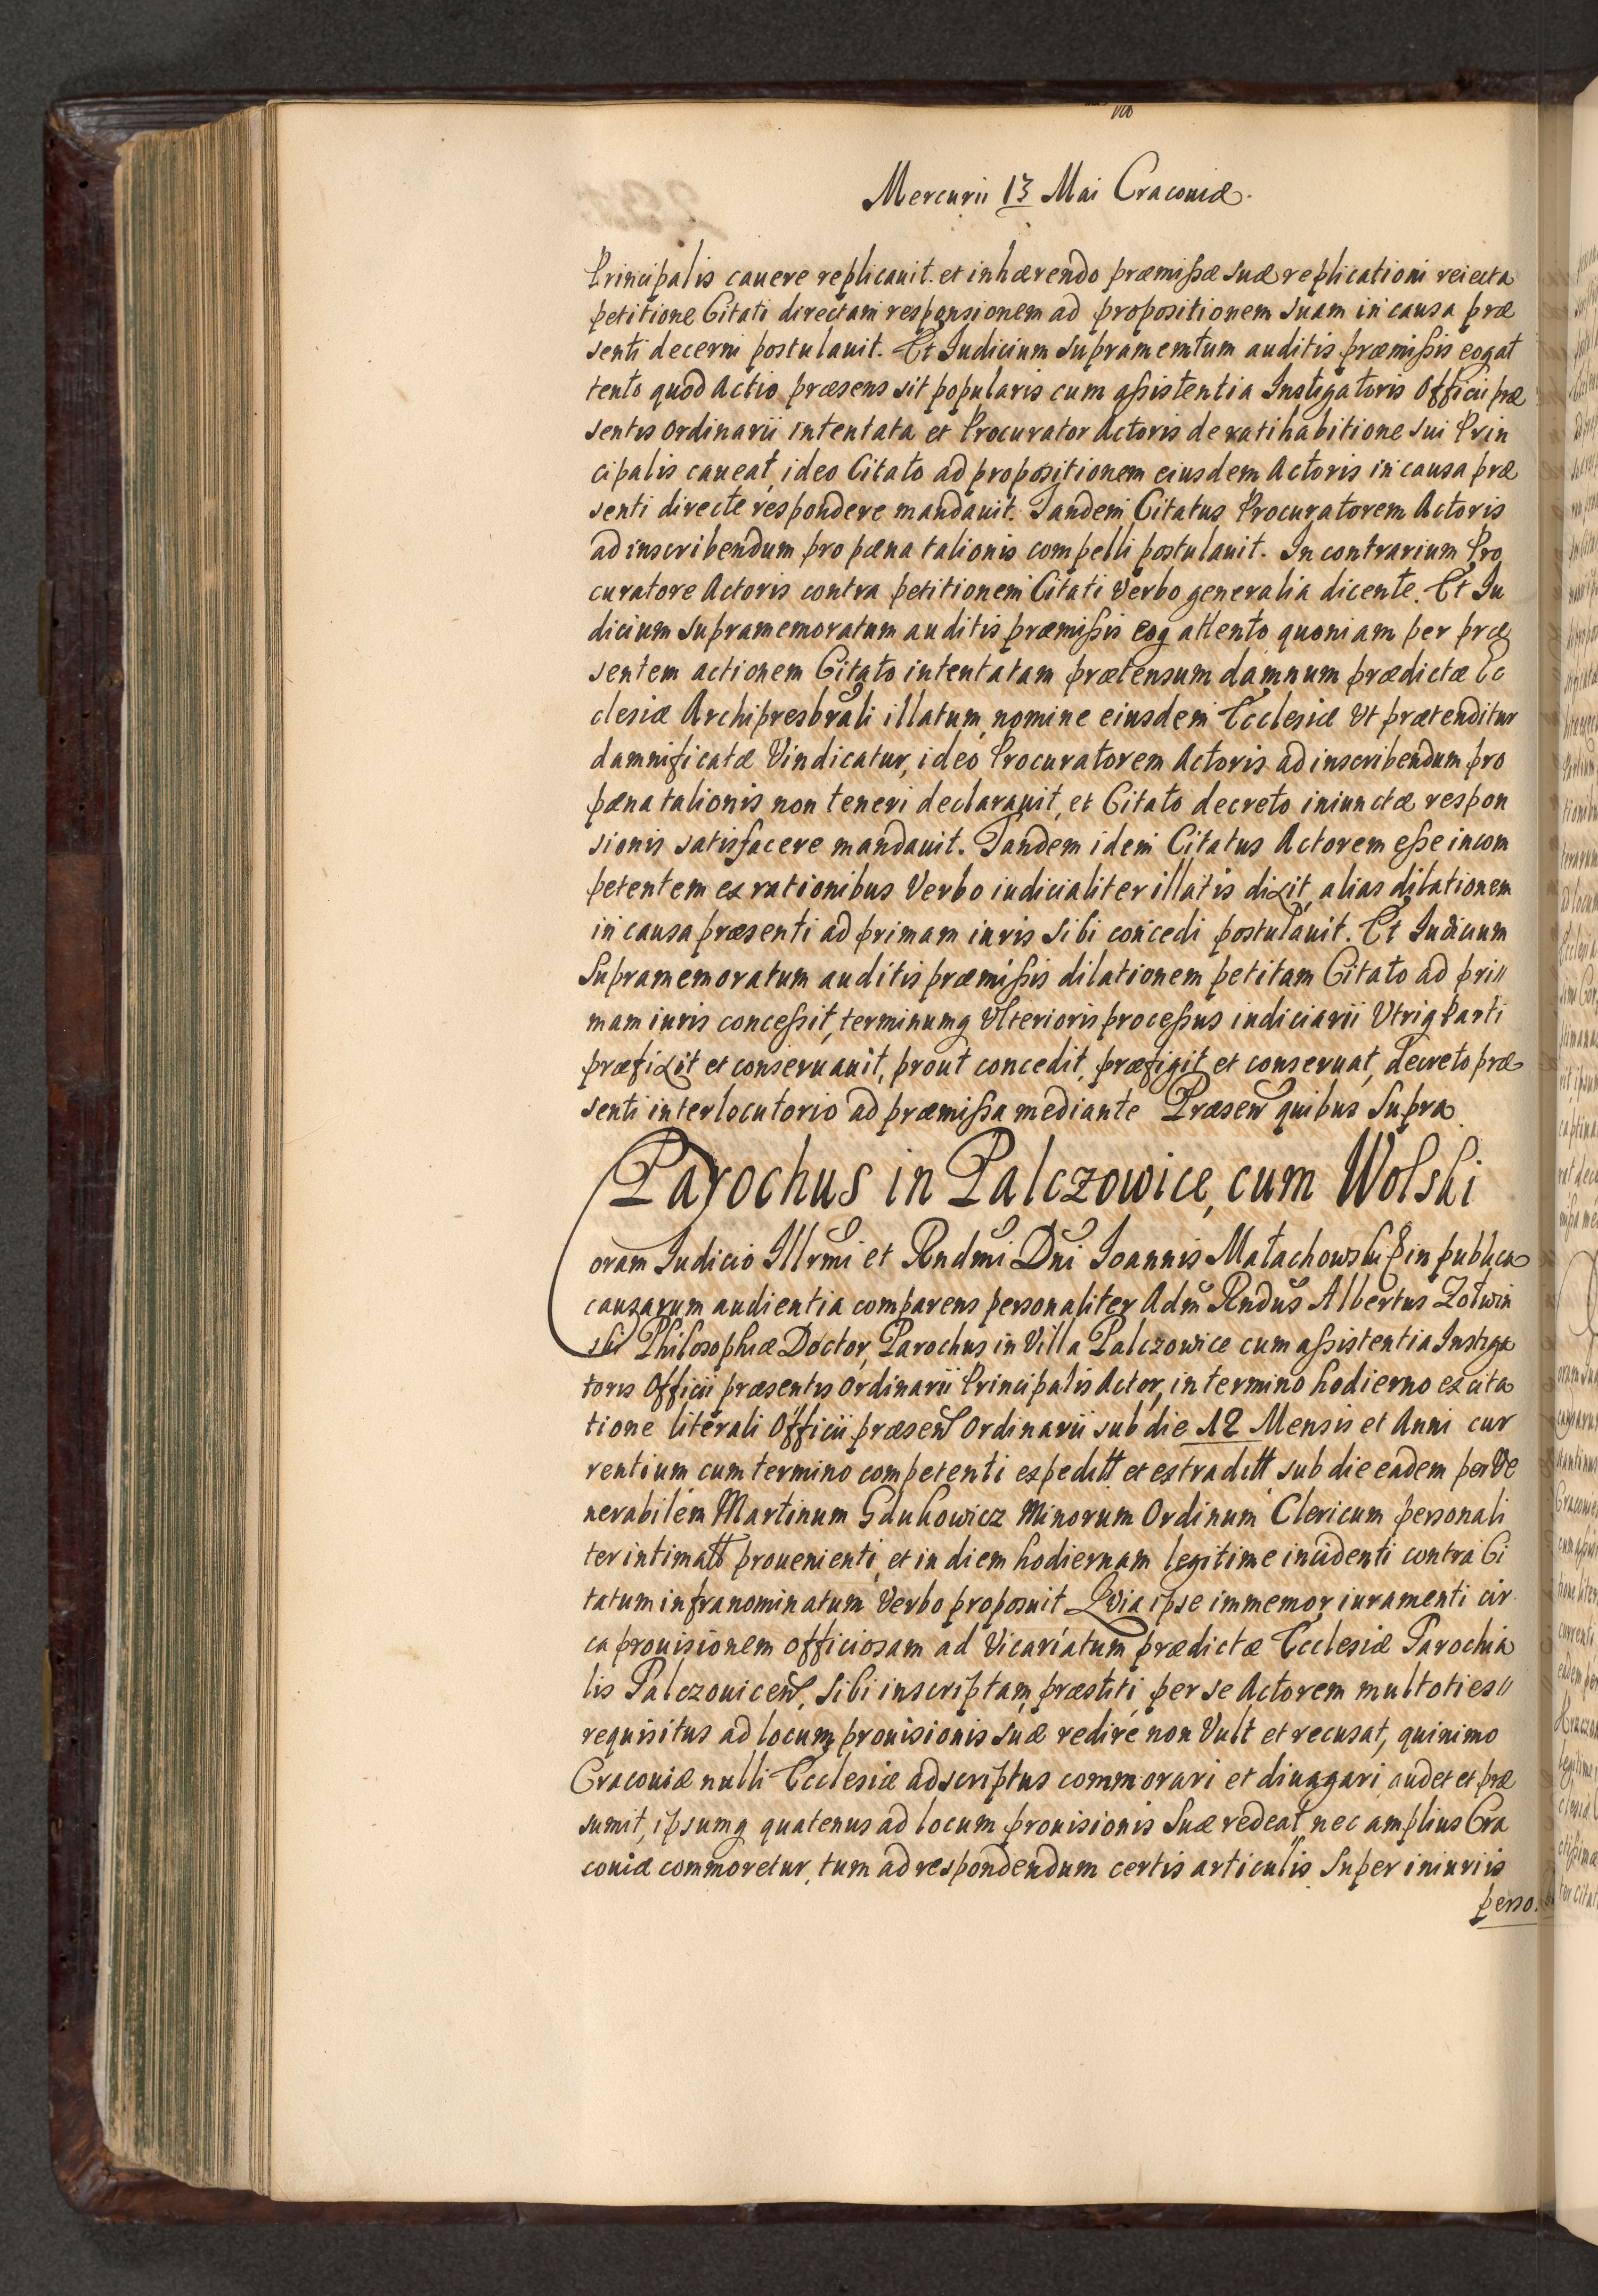 Mercurii 13 Mai Cracouiæ.
Principalis cauere replicauit. et inhærendo præmißæ suæ replicationi reiecta
petitione Citati directam responsionem ad propositionem suam in causa præ
senti decerni postulauit. Et Iudicium supramemtum auditis præmißis eoqat
tento quod Actio præsens sit popularis cum aßistentia Instigatoris Officii præ
sentis ordinarii intentata et Procurator Actoris de ratihabitione sui Prin
cipalis caueat, ideo Citato ad propositionem eiusdem Actoris in causa præ
senti directe respondere mandauit. Tandem Citatus Procuratorem Actoris
ad inscribendum pro pœna talionis compelli postulauit. In contrarium Pro
curatore Actoris contra petitionem Citati Verbo generalia dicente. Et Iu
dicium supramemoratum auditis præmißis eoq attento quoniam per præ
sentem actionem Citato intentatam prætensum damnum prædictæ Ec
clesiæ Archipresbrali illatum, nomine eiusdem Ecclesiæ Vt prætenditur
damnificatæ Vindicatur, ideo Procuratorem Actoris ad inscribendum pro
pœna talionis non teneri declarauit, et Citato decreto iniunctæ respon
sionis satisfacere mandauit. Tandem idem Citatus Actorem eße incom
petentem ex rationibus Verbo iudicialiter illatis dixit, alias dilationem
in causa præsenti ad primam iuris sibi concedi postulauit. Et Iudicium
Supramemoratum auditis præmißis dilationem petitam Citato ad pri//
mam iuris conceßit, terminumq Vlterioris proceßus iudiciarii Vtriq Parti
præfixit et conseruauit, prout concedit, præfigit et conseruat, decreto præ
senti interlocutorio ad præmißa mediante Præsen quibus Supra.
Parochus in Palczowice, cum Wolski
Coram Iudicio Illrmi et Rndmi Dni Ioannis Małachowski P in publica
causarum audientia comparens personaliter Adm Rndus Albertus Zołwin
ski Philosophiæ Doctor, Parochus in Villa Palczowice cum aßistentia Instiga
toris Officii præsentis ordinarii Principalis Actor, in termino hodierno ex cita
tione literali Officii præsen Ordinarii sub die 12 Mensis et Anni cur
rentium cum termino competenti expeditt et extraditt sub die eadem per Ve
nerabilem Martinum Gdukowicz Minorum Ordinum Clericum personali
ter intimatt prouenienti, et in diem hodiernam legitime incidenti contra Ci
tatum infranominatum Verbo proposuit Quia ipse immemor iuramenti cir
ca prouisionem officiosam ad Vicariatum prædictæ Ecclesiæ Parochia
lis Palczouicen, sibi inscriptam, præstiti, per se Actorem multoties//
requisitus ad locum prouisionis suæ redire non Vult et recusat, quinimo
Cracouiæ nulli Ecclesiæ adscriptus commorari et diuagari audet et præ
sumit, ipsumq quatenus ad locum prouisionis Suæ redeat, nec amplius Cra
couiæ commoretur, tum ad respondendum certis articulis Super iniuriis
perso.